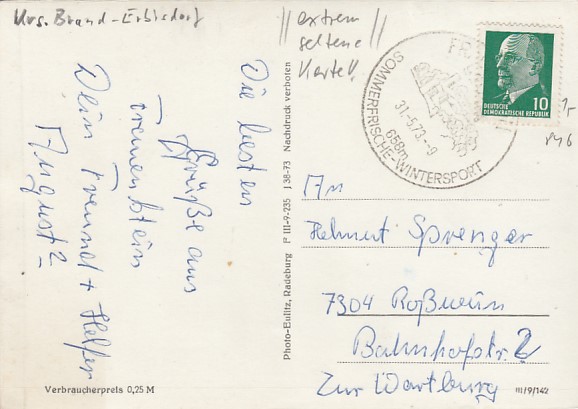 Krs. Brand-Erbisdorf
//extrem//
seltene
Karte!!
Die besten
Grüße aus
Frauenstein
Dein Freund + Helfer
August 2
Verbraucherpreis 0,25 M
Photo-Eulitz, Radeburg P III-9-235 J 38-73 Nachdruck verboten
FR
31.-5.73.-9
658m
SOMMERFRISCHE-WINTERSPORT
10
DEUTSCHE
DEMOKRATISCHE REPUBLIK
An
Helmut Sprenger
7304 Roßwein
Bahnhofstr. 2
Zur Wartburg
III/9/142